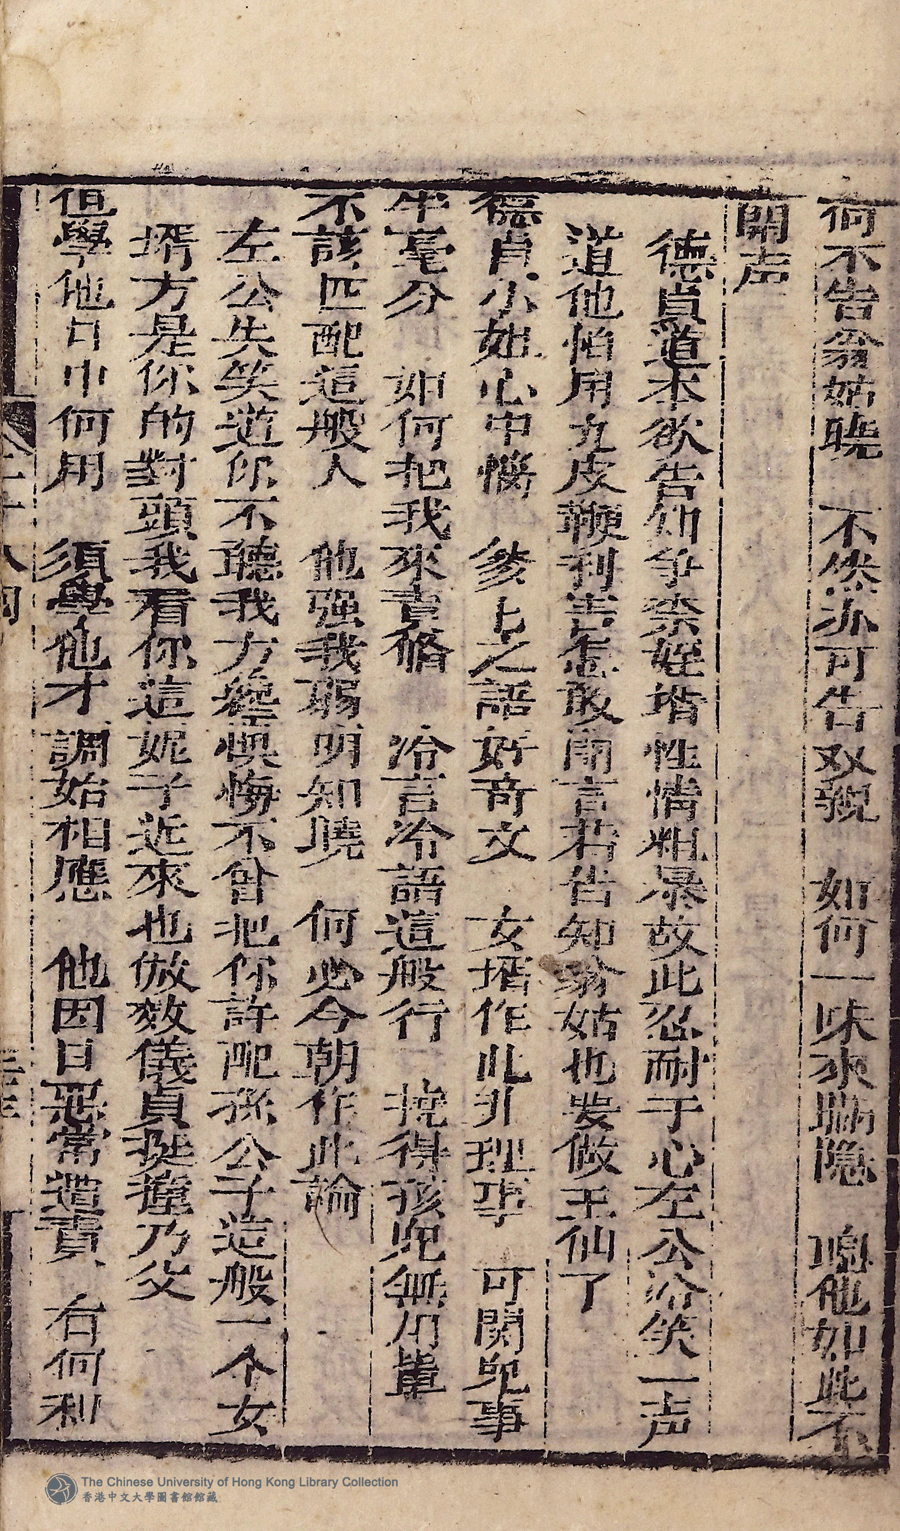 何不告翁姑曉　不然亦可告双親　如何一味來瞞隐　鳴他如此不
開声
德貞道本欲告知争柰姪壻性情粗暴故此忍耐于心左公冷笑一声
道他怕用九皮鞭利害怎敢開言若告知翁姑也要做王仙了
德貞小姐心中惱　爹上之語好奇文　女壻作此非理事　可関兒事
半毫分　如何把我來責偹　冷言冷語這般行　挽得孩兒無用輩
不該匹配這般人　他强我弱明知曉　何必今朝作此論
左公失笑道你不聽我方纔悞悔不曾把你許配孫公子這般一个女
壻方是你的對頭我看你這妮子近來也倣效儀貞挺撞乃父
但學他口中何用　須學他才調始相應　他因日惡常遣責　右何利
二十八回
The Chinese University of Hong Kong Library Collection
香港中文大學圖書館館藏